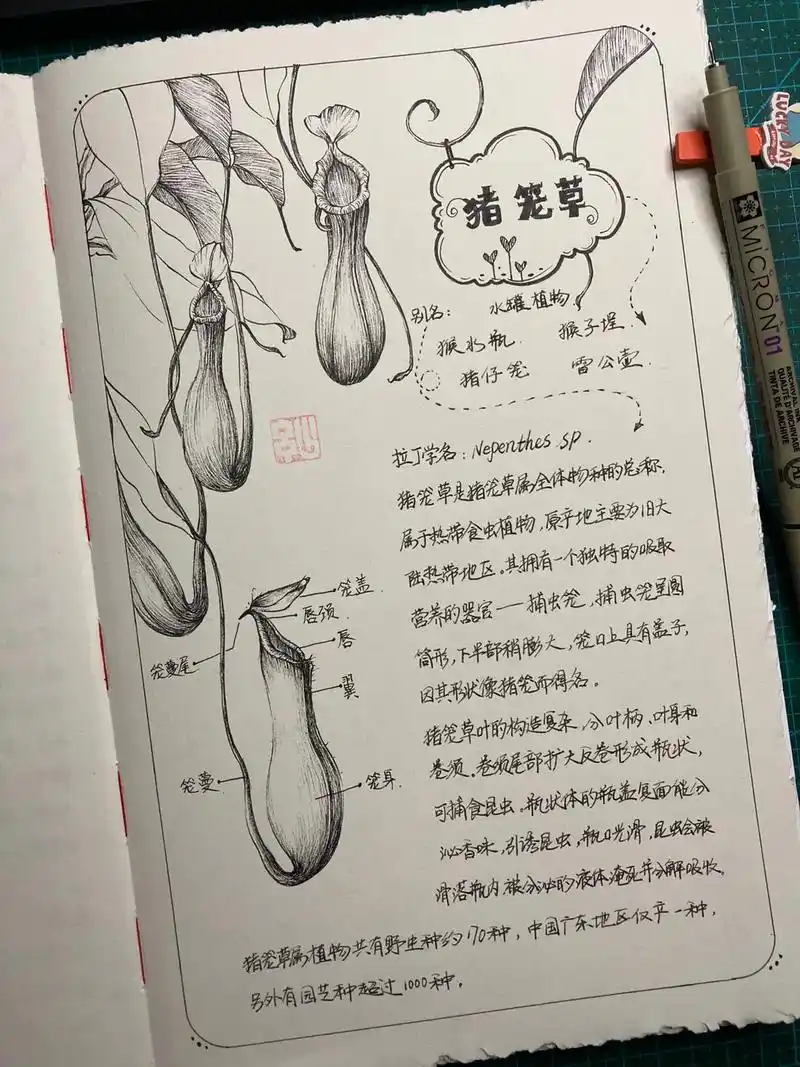 猪笼草
别名: 水罐植物
猴水瓶 猴子埕
猪仔笼 雷公壶
拉丁学名: Nepenthes sp.
猪笼草是猪笼草属全体物种的总称.
属于热带食虫植物, 原产地主要为旧大
陆热带地区。其拥有一个独特的吸取
营养的器官——捕虫笼, 捕虫笼呈圆
筒形, 下半部稍膨大, 笼口上具有盖子,
因其形状像猪笼而得名。
猪笼草叶的构造复杂, 分叶柄、叶身和
卷须。卷须尾部扩大反卷形成瓶状,
可捕食昆虫。瓶状体的瓶盖复面能分
泌香味, 引诱昆虫, 瓶口光滑, 昆虫会被
滑落瓶内, 被分泌的液体淹死并分解吸收.
猪笼草属植物共有野生种约170种, 中国广东地区仅产一种,
另外有园艺种超过1000种。
笼盖
唇须
唇
翼
笼蔓尾
笼蔓
笼身
LUCKY DAY
MICRON 01
ARCHIVAL INK
QUALITÉ D'ARCHIVAGE
TINTA DE ARCHIVE